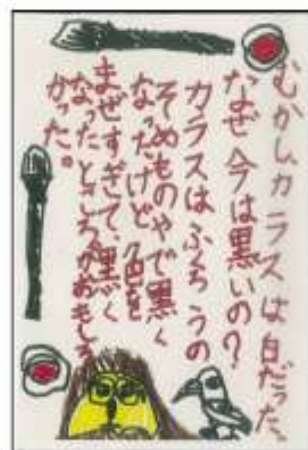 むかしカラスは白だった、
なぜ今は黒いの?
カラスはふくろうの
そめものやで黒く
なったけど色を
まぜすぎて、黒く
なったところがおもしろ
かった。